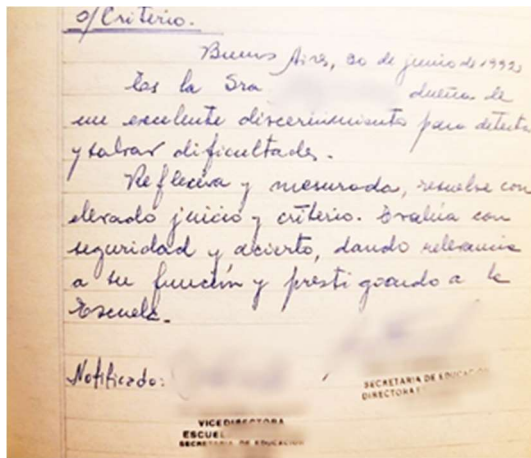 o/Criterio.
Buenos Aires, 30 de junio de 1992
Es la Sra dueña de
un excelente discernimiento para detectar
y salvar dificultades.
Reflexiva y mesurada, resuelve con
elevado juicio y criterio. Evalúa con
seguridad y acierto, dando relevancia
a su función y prestigiando a la
Escuela.
Notificado:
SECRETARIA DE EDUCACION
DIRECTORA
VICEDIRECTORA
ESCUEL
SECRETARIA DE EDUCACION